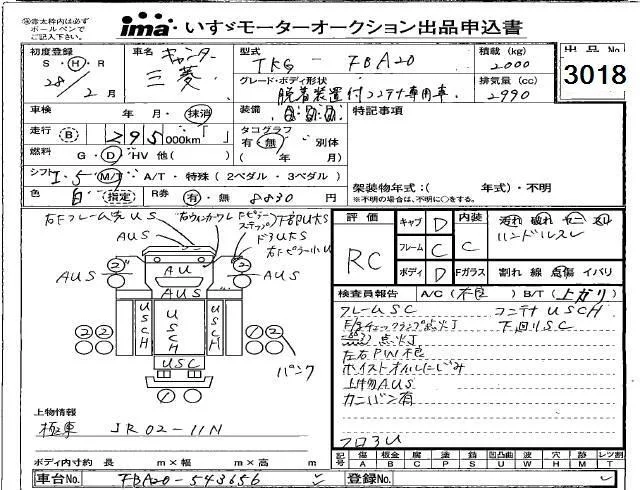 ※赤太枠内は必ず
ボールペンで
ご記入下さい。
ima いすゞモーターオークション出品申込書
初度登録 S・H・R 28/2月
車名 キャンター 三菱
型式 TKG - FBA20
積載(kg) 2000
出品No 3018
グレード・ボディ形状 脱着装置付コンテナ専用車
排気量(cc) 2990
車検 年・月・抹消
装備
特記事項
走行 B 295,000km「 」
タコグラフ 有・無 別体 ( 年 月)
燃料 G・D・HV 他( )
シフト I・5 M/T・A/T・特殊(2ペダル・3ペダル)
架装物年式:( 年式)・不明
※不明の場合は、不明に○をする。
色 白 指定
R券 有・無 8830円
右Fフレーム先US
AUS
下部U大S
ドアU大S
AUS
AUS
AU
AUS
AUS
2 2
USCH
USCH
USCH
USC
2 2
パンク
評価 RC
キャブ D
内装 C
汚れ 破れ ヤニ スレ
ハンドルスレ
フレーム C
ボディ D
Fガラス 割れ 線 点傷 イバリ
検査員報告 A/C(不良) B/T(上がり)
フレームUSC
コンテナUSCH
下廻りSC
点火丁
左右PW不良
ホイストオイルにじみ
上物AUS
カニバン有
フロアU
上物情報
極東 JR02-11N
ボディ内寸約 長 m×幅 m×高 m
記号 傷A 板金B 腐C 塗P 錆S 凹凸曲U 波W 穴H 痕M レンズ割T
車台No. FBA20-543656
登録No.